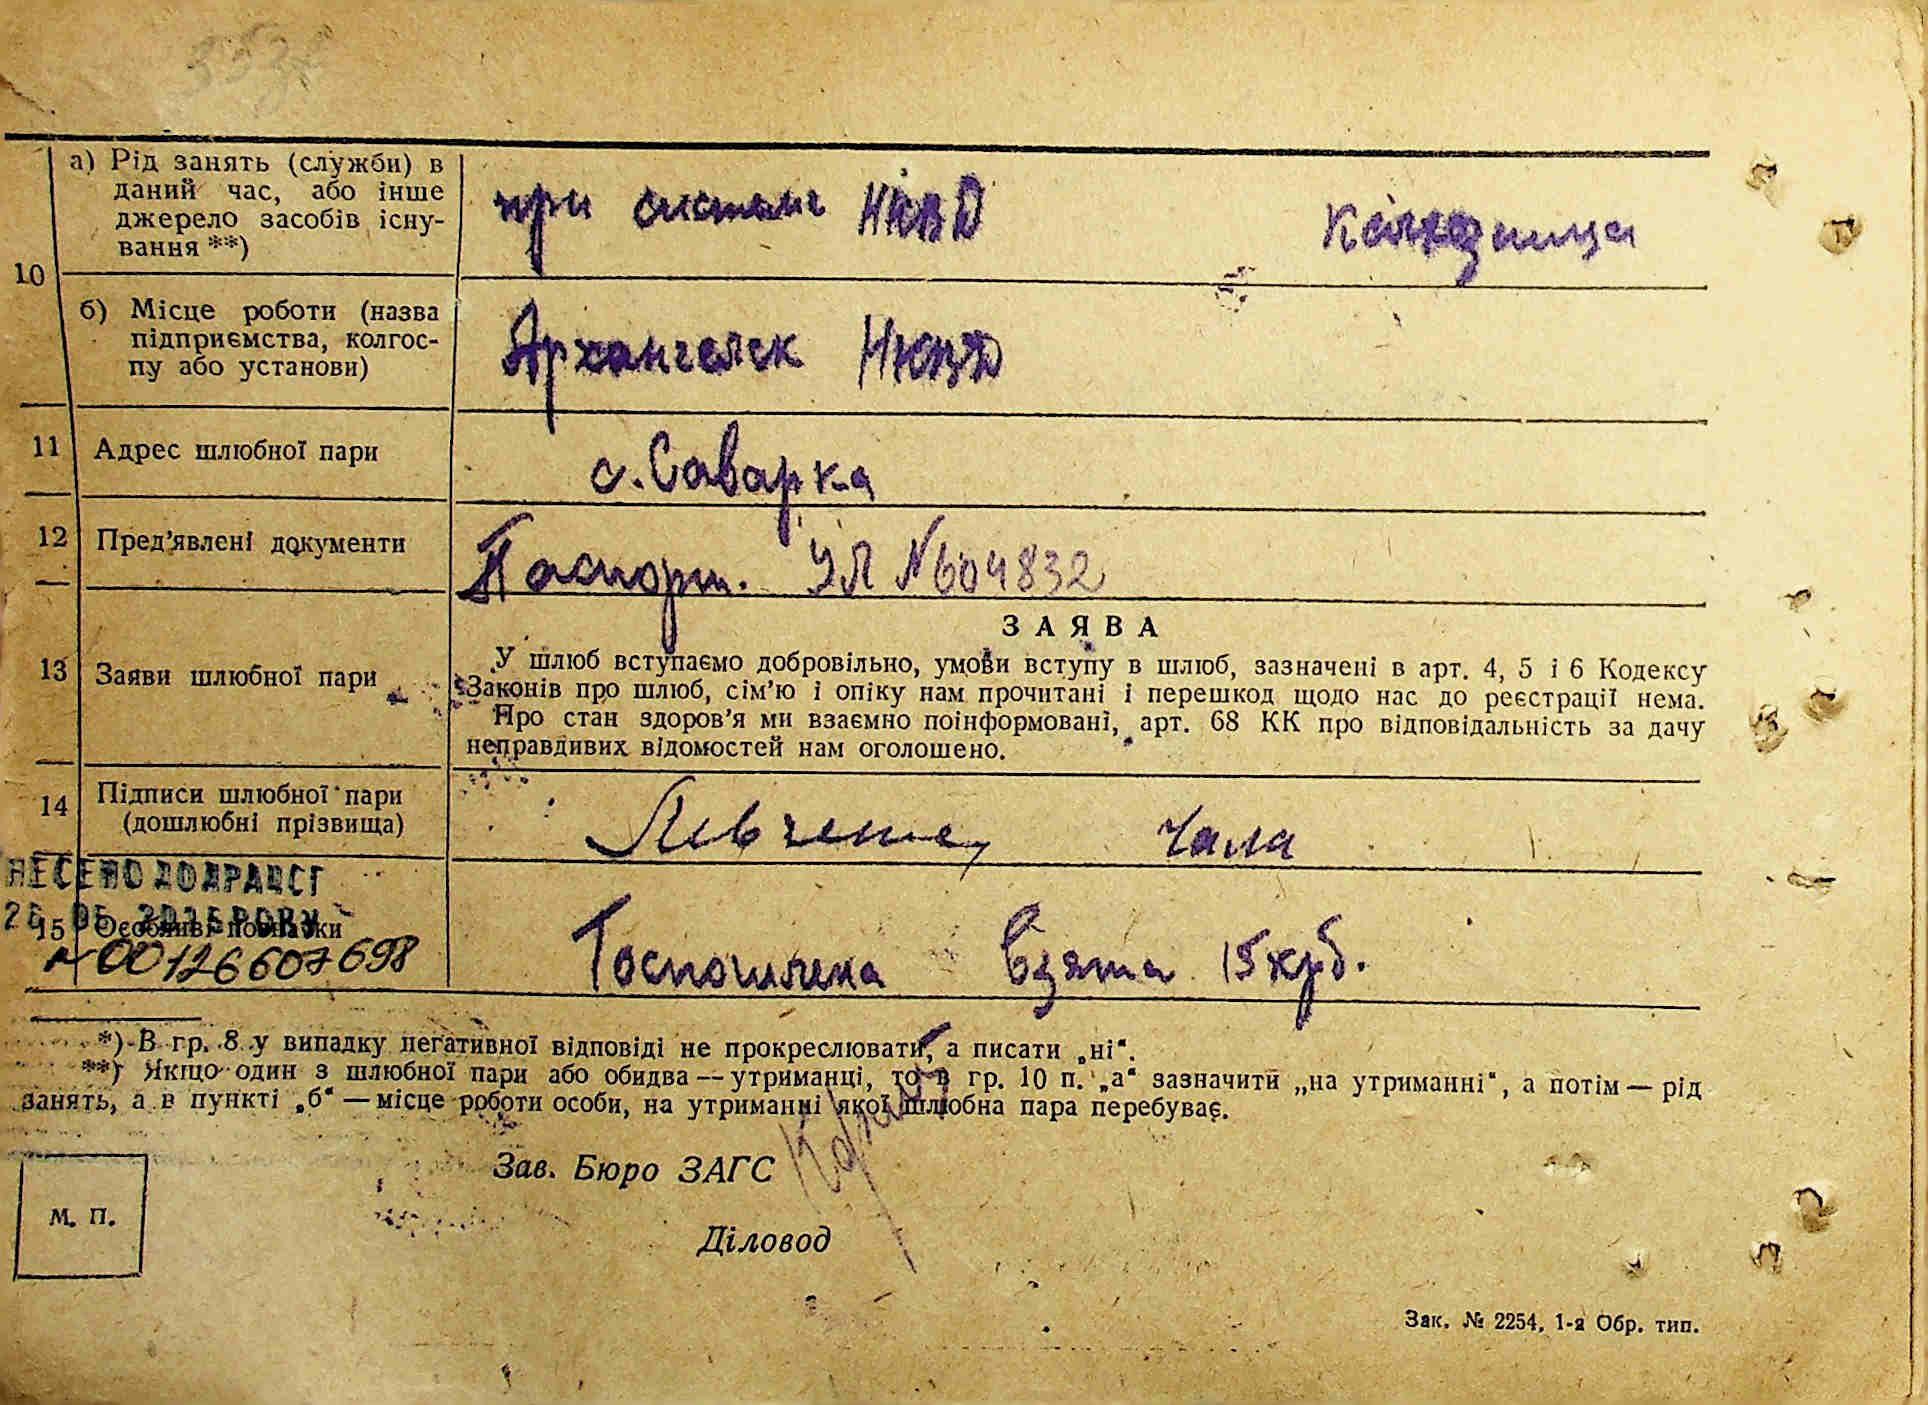 а) Рід занять (служби) в
даний час, або інше
джерело засобів існу-
вання **)
при системі НКВД
Колхозница
10
б) Місце роботи (назва
підприємства, колгос-
пу або установи)
Архангелск НКВД
11 Адрес шлюбної пари
с. Саварка
12 Пред'явлені документи
Паспорт. УЛ №604832
ЗАЯВА
13 Заяви шлюбної пари
У шлюб вступаємо добровільно, умови вступу в шлюб, зазначені в арт. 4, 5 і 6 Кодексу
Законів про шлюб, сім'ю і опіку нам прочитані і перешкод щодо нас до реєстрації нема.
Про стан здоров'я ми взаємно поінформовані, арт. 68 КК про відповідальність за дачу
неправдивих відомостей нам оголошено.
14 Підписи шлюбної пари
(дошлюбні прізвища)
Чала
НЕСЕНО ДО ДРАЦСГ
15 Особливі познайки
00126607698
Госпошлина взята 15 крб.
*) В гр. 8 у випадку негативної відповіді не прокреслювати, а писати „ні“.
**) Якщо один з шлюбної пари або обидва — утриманці, то в гр. 10 п. „а“ зазначити „на утриманні“, а потім — рід
занять, а в пункті „б“ — місце роботи особи, на утриманні якої шлюбна пара перебуває.
Зав. Бюро ЗАГС
М. П.
Діловод
Зак. № 2254, 1-я Обр. тип.